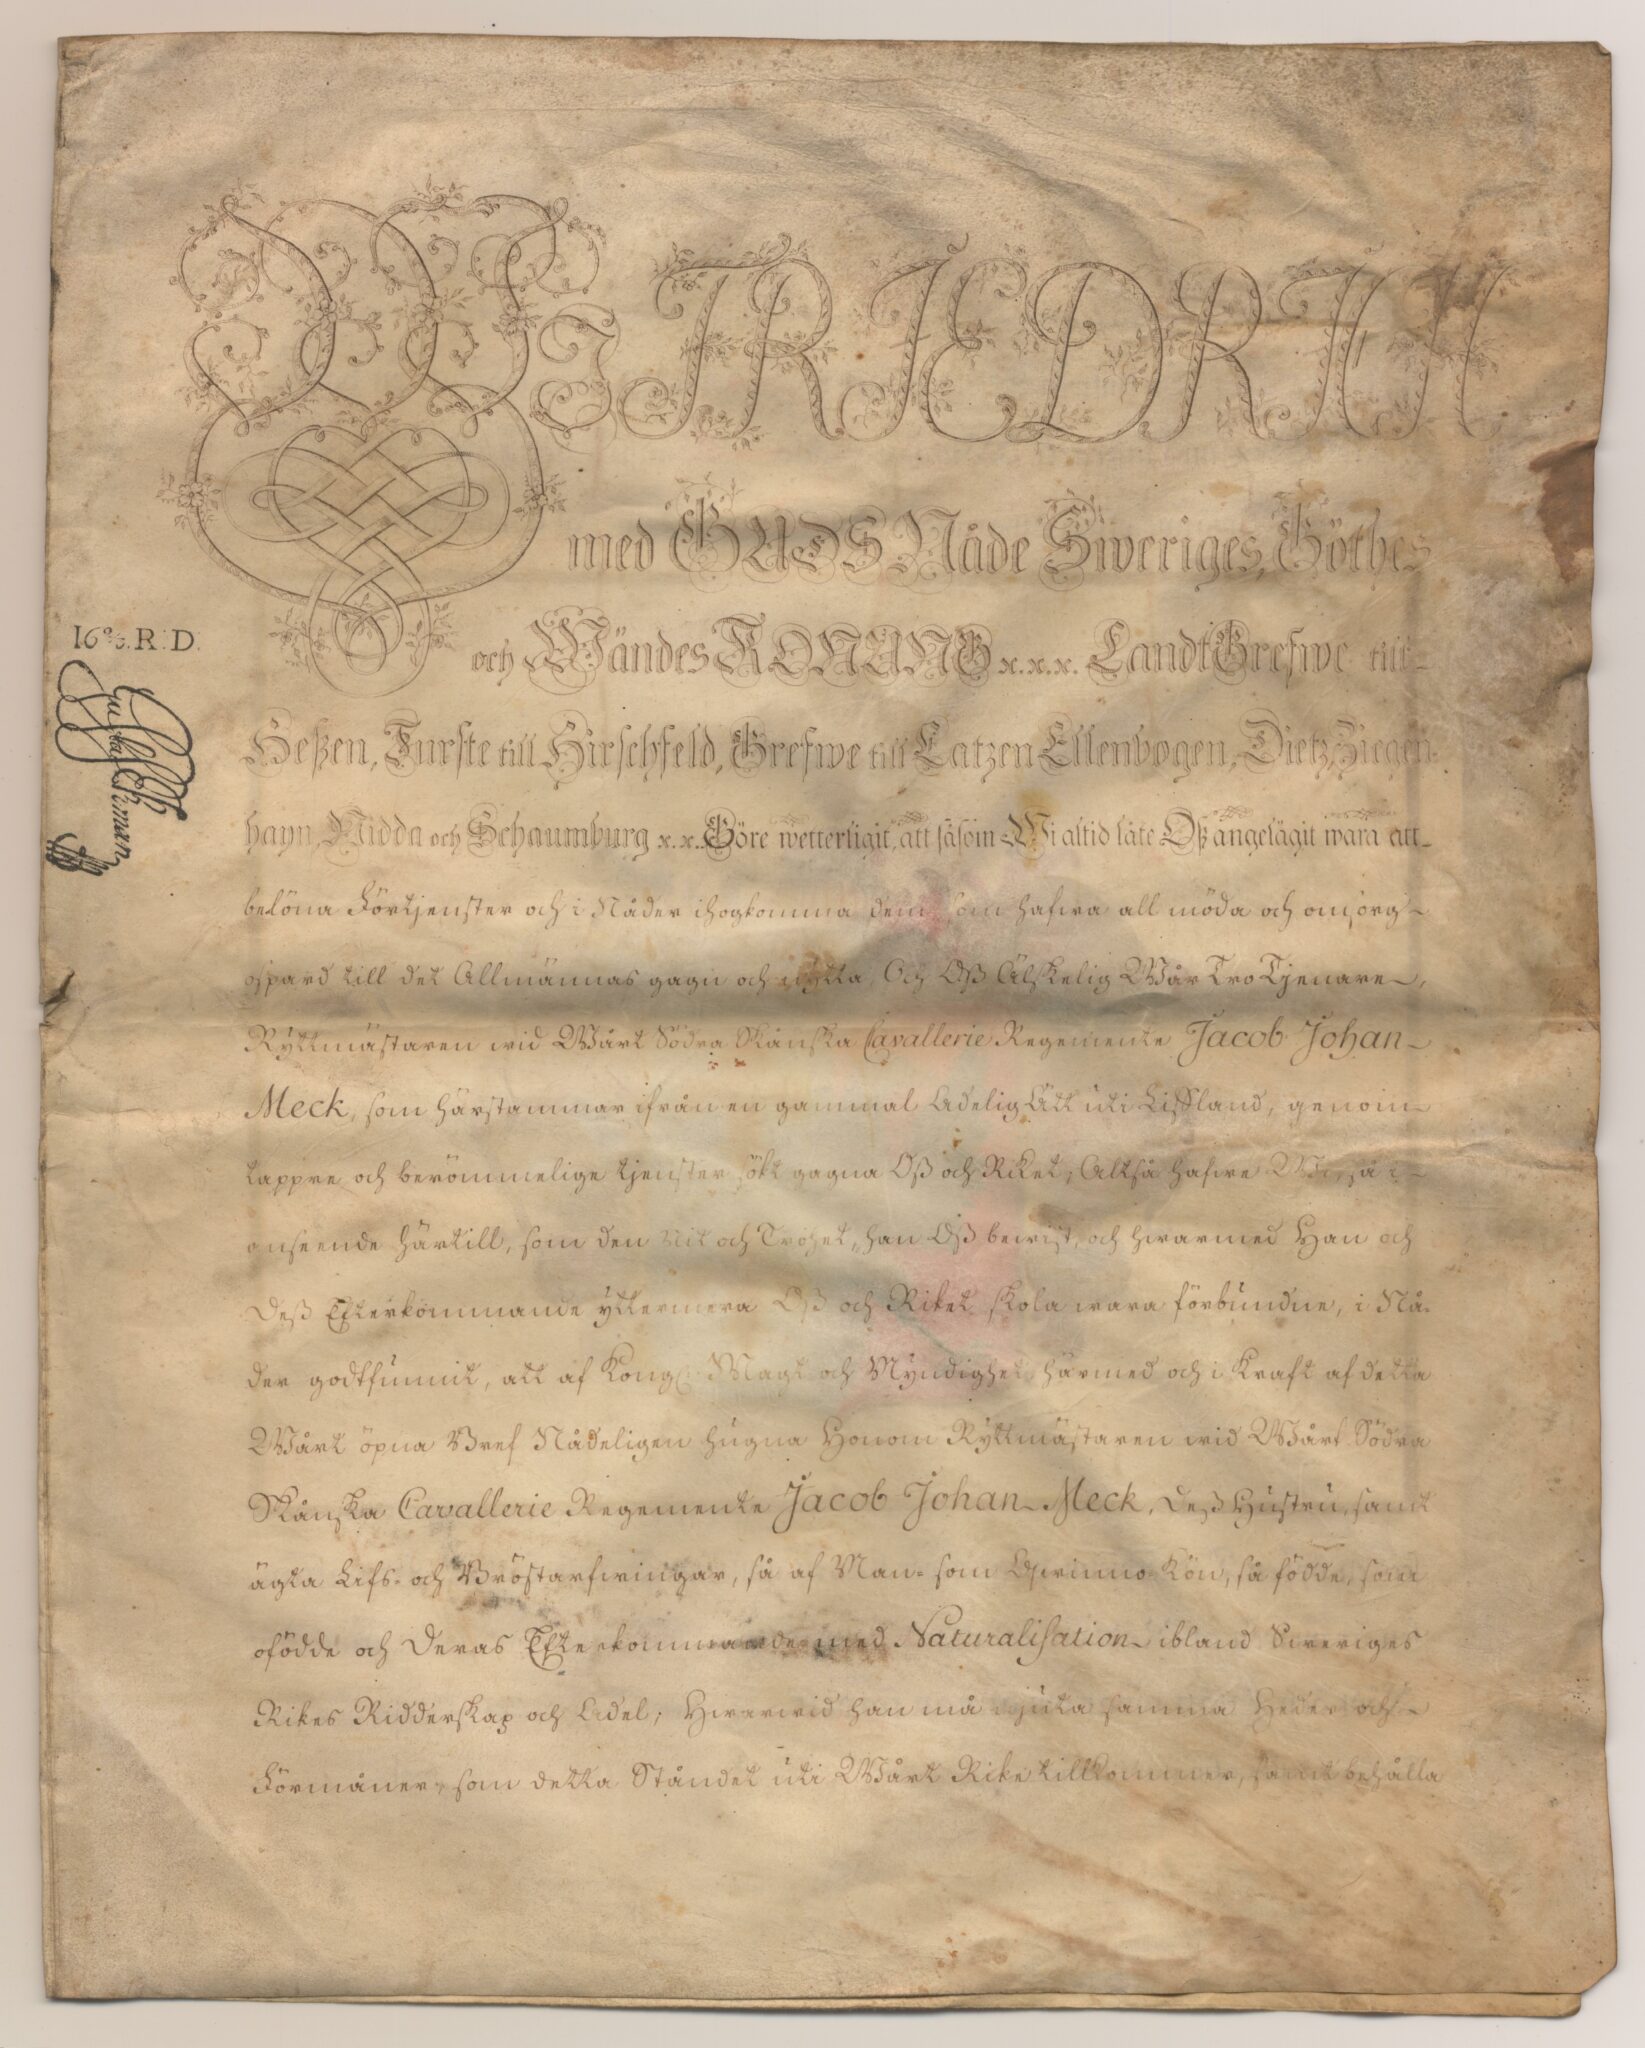 Wi FRIEDRICH
med GUDS Nåde Sweriges, Göthes
och Wändes KONUNG x.x.x. LandtGrefwe till
Heßen, Furste till Hirschfeld, Grefwe till CatzenEllenbogen, Dietz, Ziegen-
hayn, Nidda och Schaumburg x.x. Göre wetterligit, att såsom Wi altid låte Oß angelägit wara att
belöna Förtjenster och i Nåder ihogkomma dem, som hafwa all möda och omsorg
ospard till det Allmännas gagn och nytta, Och Oß Älskelig Wår Tro Tjenare,
Ryttmästaren wid Wårt Södra Skånska Cavallerie Regemente Jacob Johan
Meck, som härstammar ifrån en gammal Adelig Ätt uti Liffland, genom
tappre och berömmelige tjenster sökt gagna Oß och Riket; Altså hafwe Wi, så i
anseende härtill, som den Nit och Trohet, han Oß bewist, och hwarmed Han och
Deß Efterkommande yttermera Oß och Riket skola wara förbundne, i Nå-
der godtfunnit, att af Kongl. Magt och Myndighet, härmed och i Kraft af detta
Wårt öpna Bref Nådeligen hugna Honom Ryttmästaren wid Wårt Södra
Skånska Cavallerie Regemente Jacob Johan Meck, Deß Hustru, samt
ägta Lifs- och Bröstarfwingar, så af Man- som Qwinno-Kön, så födde, som
ofödde och Deras Efterkommande med Naturalisation ibland Sweriges
Rikes Ridderskap och Adel; Hwarwid han må njuta samma Heder och
Förmåner, som detta Ståndet uti Wårt Rike tillkommer, samt behålla
R.D.